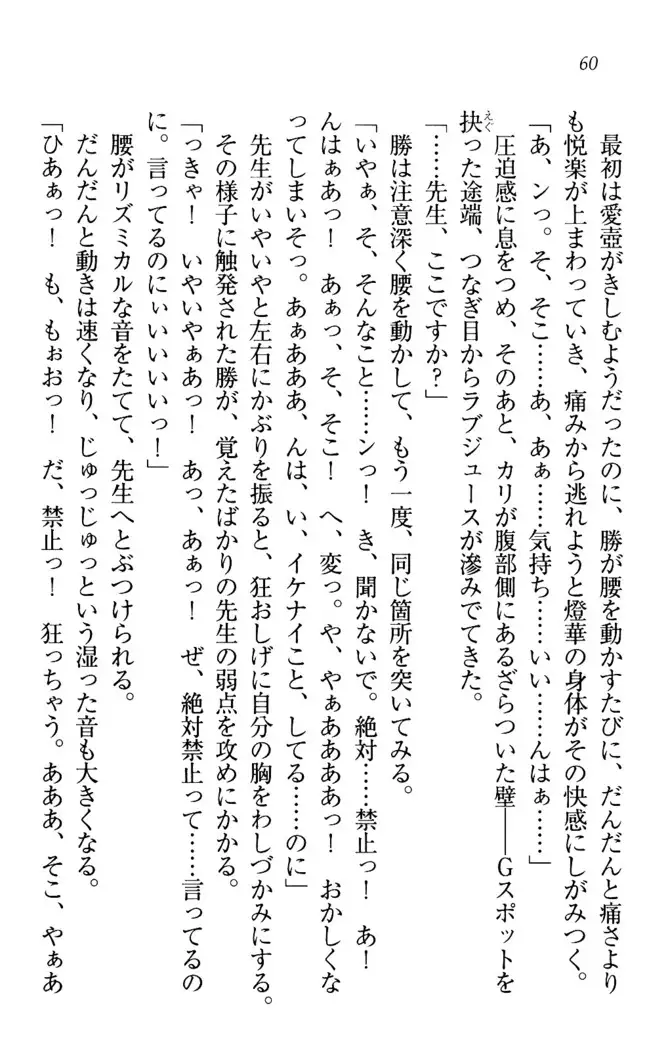 60
最初は愛壺がきしむようだったのに、勝が腰を動かすたびに、だんだんと痛さより
も悦楽が上まわっていき、痛みから逃れようと燈華の身体がその快感にしがみつく。
「あ、ンっ。そ、そこ……あ、あぁ……気持ち……いい……んはぁ……」
圧迫感に息をつめ、そのあと、カリが腹部側にあるざらついた壁──Gスポットを
抉った途端、つなぎ目からラブジュースが滲みでてきた。
えぐ
「……先生、ここですか？」
勝は注意深く腰を動かして、もう一度、同じ箇所を突いてみる。
「いやぁ、そ、そんなこと……ンっ！　き、聞かないで。絶対……禁止っ！　あ！
んはぁあっ！　あぁっ、そ、そこ！　へ、変っ。や、やぁああああっ！　おかしくな
ってしまいそっ。あぁあああ、んは、い、イケナイこと、してる……のに」
先生がいやいやと左右にかぶりを振ると、狂おしげに自分の胸をわしづかみにする。
その様子に触発された勝が、覚えたばかりの先生の弱点を攻めにかかる。
「っきゃ！　いやいやぁあっ！　あっ、あぁっ！　ぜ、絶対禁止って……言ってるの
に。言ってるのにぃいいいいっ！」
腰がリズミカルな音をたてて、先生へとぶつけられる。
だんだんと動きは速くなり、じゅっじゅっという湿った音も大きくなる。
「ひあぁっ！　も、もぉおっ！　だ、禁止っ！　狂っちゃう。あああ、そこ、やぁあ